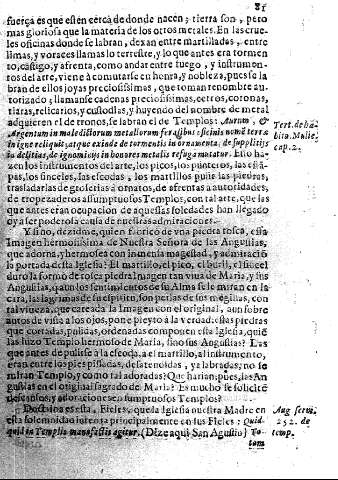 81
fuerça es que estèn cerca de donde nacen; tierra son, pero
mas gloriosa que la materia de los otros metales. En las crue
les oficinas donde se labran, dexan entre martilladas, entre
limas, y voraces llamas lo terrestre, y lo que antes era tormen
to, castigo, y afrenta, como andar entre fuego, y instrumen-
tos del arte, viene à comutarse en honra, y nobleza, pues se la
bran de ellos joyas preciosissimas, que toman renombre au
torizado; llamanse cadenas preciosissimas, cetros, coronas,
tiaras, relicarios, y custodias, y huyendo del nombre de metal
adquieren el de tronos, se labran el de Templos: Aurum, &
Argentum in maledictorum metallorum feralibus officinis nomē terræ
in igne reliquit, atque exinde de tormentis in ornamenta, de supplicijs
in delitias, de ignominijs in honores metalis refuga mutatur. Esto ha-
zen los instrumentos del arte, los picos, los punteros, las esta-
pas, los sinceles, las escodas, los martillos pulir las piedras,
trasladarlas de groserias à ornatos, de afrentas à autoridades,
de tropezaderos assumptuosos Templos, con tal arte, que las
que antes eran ocupacion de aquestas soledades han llegado
oy à ser poderosa causa de nuestras admiraciones.
Y sino, dezidme, quien fabricò de vna piedra tosca, essa
Imagen hermosissima de Nuestra Señora de las Angustias,
que adorna, y hermosea con inmensa magestad, y admiraciō
la portada desta Iglesia? El martillo, el pico, el buril, el sincel
durò la forma de tosca piedra Imagen tan viua de Maria, y sus
Angustias, q aun los sentimientos de su Alma se le miran en la
cara, las lagrimas de su espiritu, son perlas de sus megillas, con
tal viueza, que careada la Imagen con el original, aun sobre
autos de vista à los ojos, pone pleyto à la verdad: estas piedras
que cortadas, pulidas, ordenadas componen esta Iglesia, quiē
las hizo Templo hermoso de Maria, sino sus Angustias? Las
que antes de pulirse à la escoda, à el martillo, al instrumento,
eran entre los pies pisadas, desatendidas, y labradas, no se
miran Templo, y como tal adoradas? Que harian, pues, las An
gustias en el original sagrado de Maria? Es mucho se solicitē
descansos, y adoraciones en sumptuosos Templos?
Doctrina es esta, Fieles, que la Iglesia nuestra Madre en
esta solemnidad intenta principalmente en sus Fieles: Quid-
quid in Templis manufactis agitur. (Dize aqui San Agustin) To-
tum
Tert. de ha
bitu Mulie.
cap. 2.
Aug. serm.
252. de
temp.